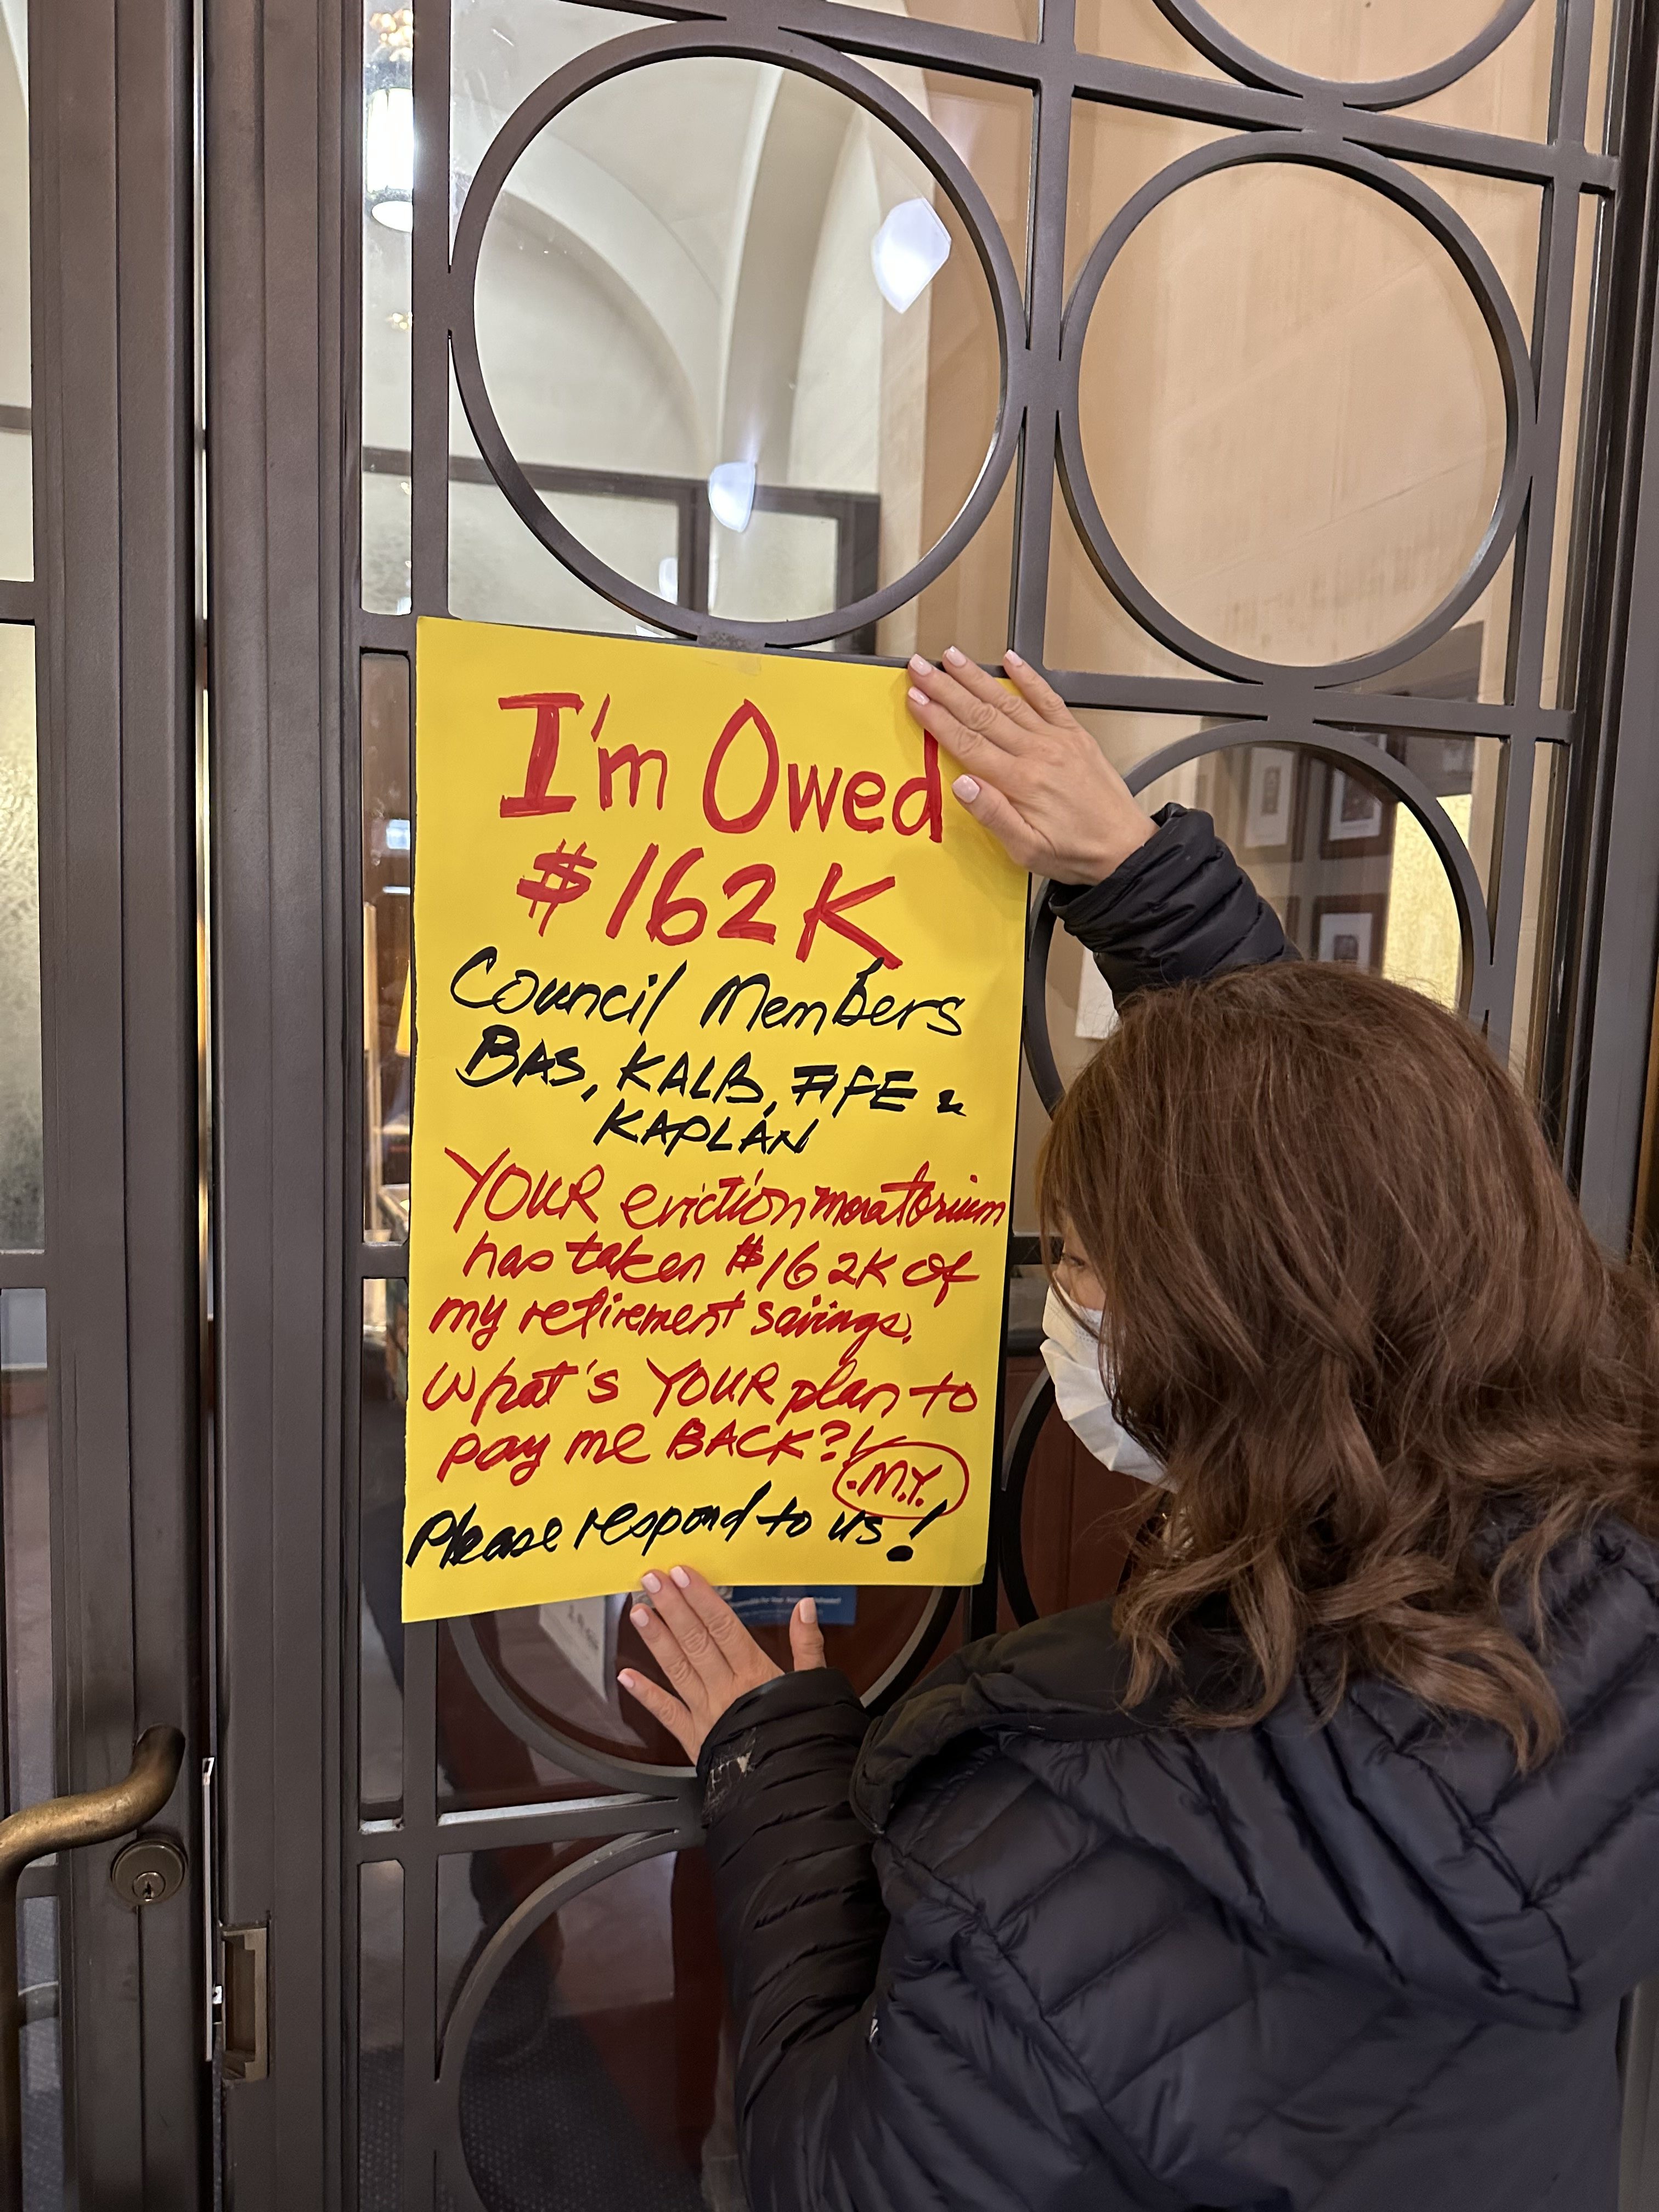 I'm Owed
$162K
Council Members
BAS, KALB, FIFE &
KAPLAN
YOUR eviction moratorium
has taken $162K of
my retirement savings.
What's YOUR plan to
pay me BACK?!
.M.Y.
Please respond to us!